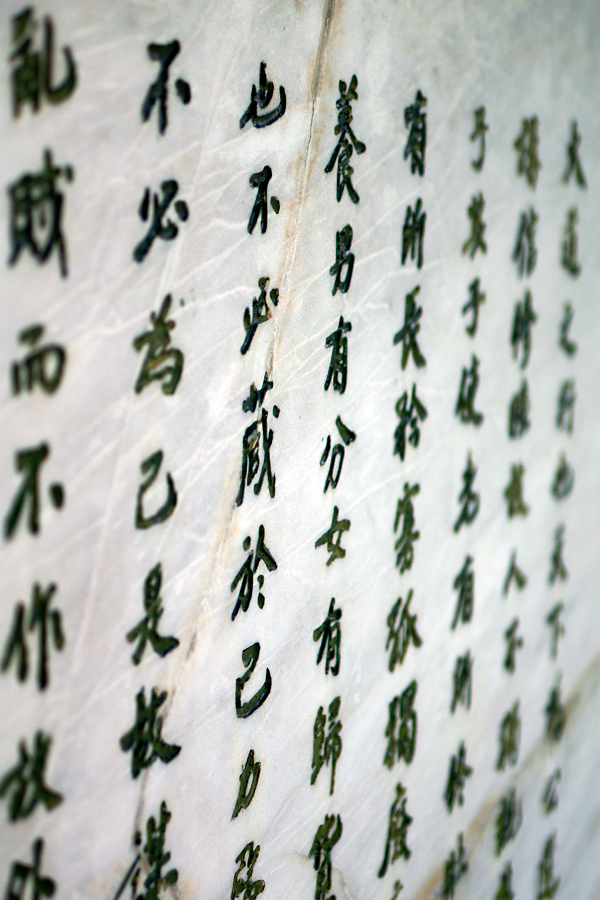 大道之行也天下為公選
講信修睦故人不獨親其
子其子使老有所終壯
有所長矜寡孤獨廢
養男有分女有歸貨
也不必藏於己力惡
不必為己是故謀
亂賊而不作故外